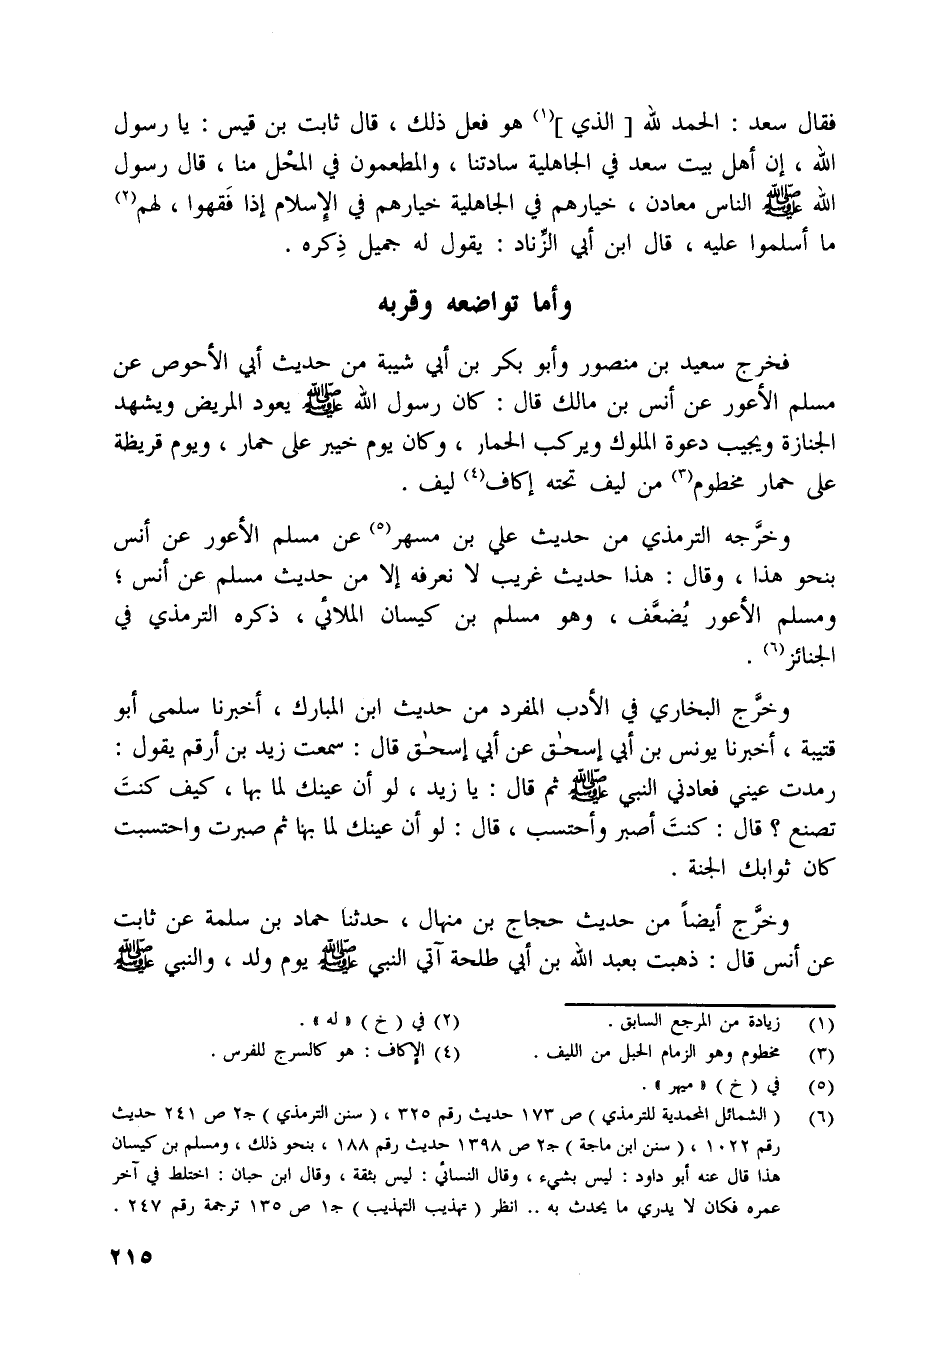 فقال سعد : الحمد لله [ الذي ](١) هو فعل ذلك ، قال ثابت بن قيس : يا رسول
الله ، إن أهل بيت سعد في الجاهلية سادتنا ، والمطعمون في المحْل منا ، قال رسول
الله ﷺ الناس معادن ، خيارهم في الجاهلية خيارهم في الإسلام إذا فَقهوا ، لهم(٢)
ما أسلموا عليه ، قال ابن أبي الزِّناد : يقول له جميل ذِكره .
وأما تواضعه وقربه
فخرج سعيد بن منصور وأبو بكر بن أبي شيبة من حديث أبي الأحوص عن
مسلم الأعور عن أنس بن مالك قال : كان رسول الله ﷺ يعود المريض ويشهد
الجنازة ويجيب دعوة الملوك ويركب الحمار ، وكان يوم خيبر على حمار ، ويوم قريظة
على حمار مخطوم(٣) من ليف تحته إكاف(٤) ليف .
وخرَّجه الترمذي من حديث علي بن مسهر(٥) عن مسلم الأعور عن أنس
بنحو هذا ، وقال : هذا حديث غريب لا نعرفه إلا من حديث مسلم عن أنس ؛
ومسلم الأعور يُضعَّف ، وهو مسلم بن كيسان الملائي ، ذكره الترمذي في
الجنائز(٦) .
وخرَّج البخاري في الأدب المفرد من حديث ابن المبارك ، أخبرنا سلمى أبو
قتيبة ، أخبرنا يونس بن أبي إسحٰق عن أبي إسحٰق قال : سمعت زيد بن أرقم يقول :
رمدت عيني فعادني النبي ﷺ ثم قال : يا زيد ، لو أن عينك لما بها ، كيف كنتَ
تصنع ؟ قال : كنتَ أصبر وأحتسب ، قال : لو أن عينك لما بها ثم صبرت واحتسبت
كان ثوابك الجنة .
وخرَّج أيضاً من حديث حجاج بن منهال ، حدثنا حماد بن سلمة عن ثابت
عن أنس قال : ذهبت بعبد الله بن أبي طلحة آتي النبي ﷺ يوم ولد ، والنبي ﷺ
(١) زيادة من المرجع السابق . (٢) في ( خ ) « له » .
(٣) مخطوم وهو الزمام الحبل من الليف . (٤) الإكاف : هو كالسرج للفرس .
(٥) في ( خ ) « ميهر » .
(٦) ( الشمائل المحمدية للترمذي ) ص ١٧٣ حديث رقم ٣٢٥ ، ( سنن الترمذي ) جـ٢ ص ٢٤١ حديث
رقم ١٠٢٢ ، ( سنن ابن ماجة ) جـ٢ ص ١٣٩٨ حديث رقم ١٨٨ ، بنحو ذلك ، ومسلم بن كيسان
هذا قال عنه أبو داود : ليس بشيء ، وقال النسائي : ليس بثقة ، وقال ابن حبان : اختلط في آخر
عمره فكان لا يدري ما يحدث به .. انظر ( تهذيب التهذيب ) جـ١ ص ١٣٥ ترجمة رقم ٢٤٧ .
٢١٥